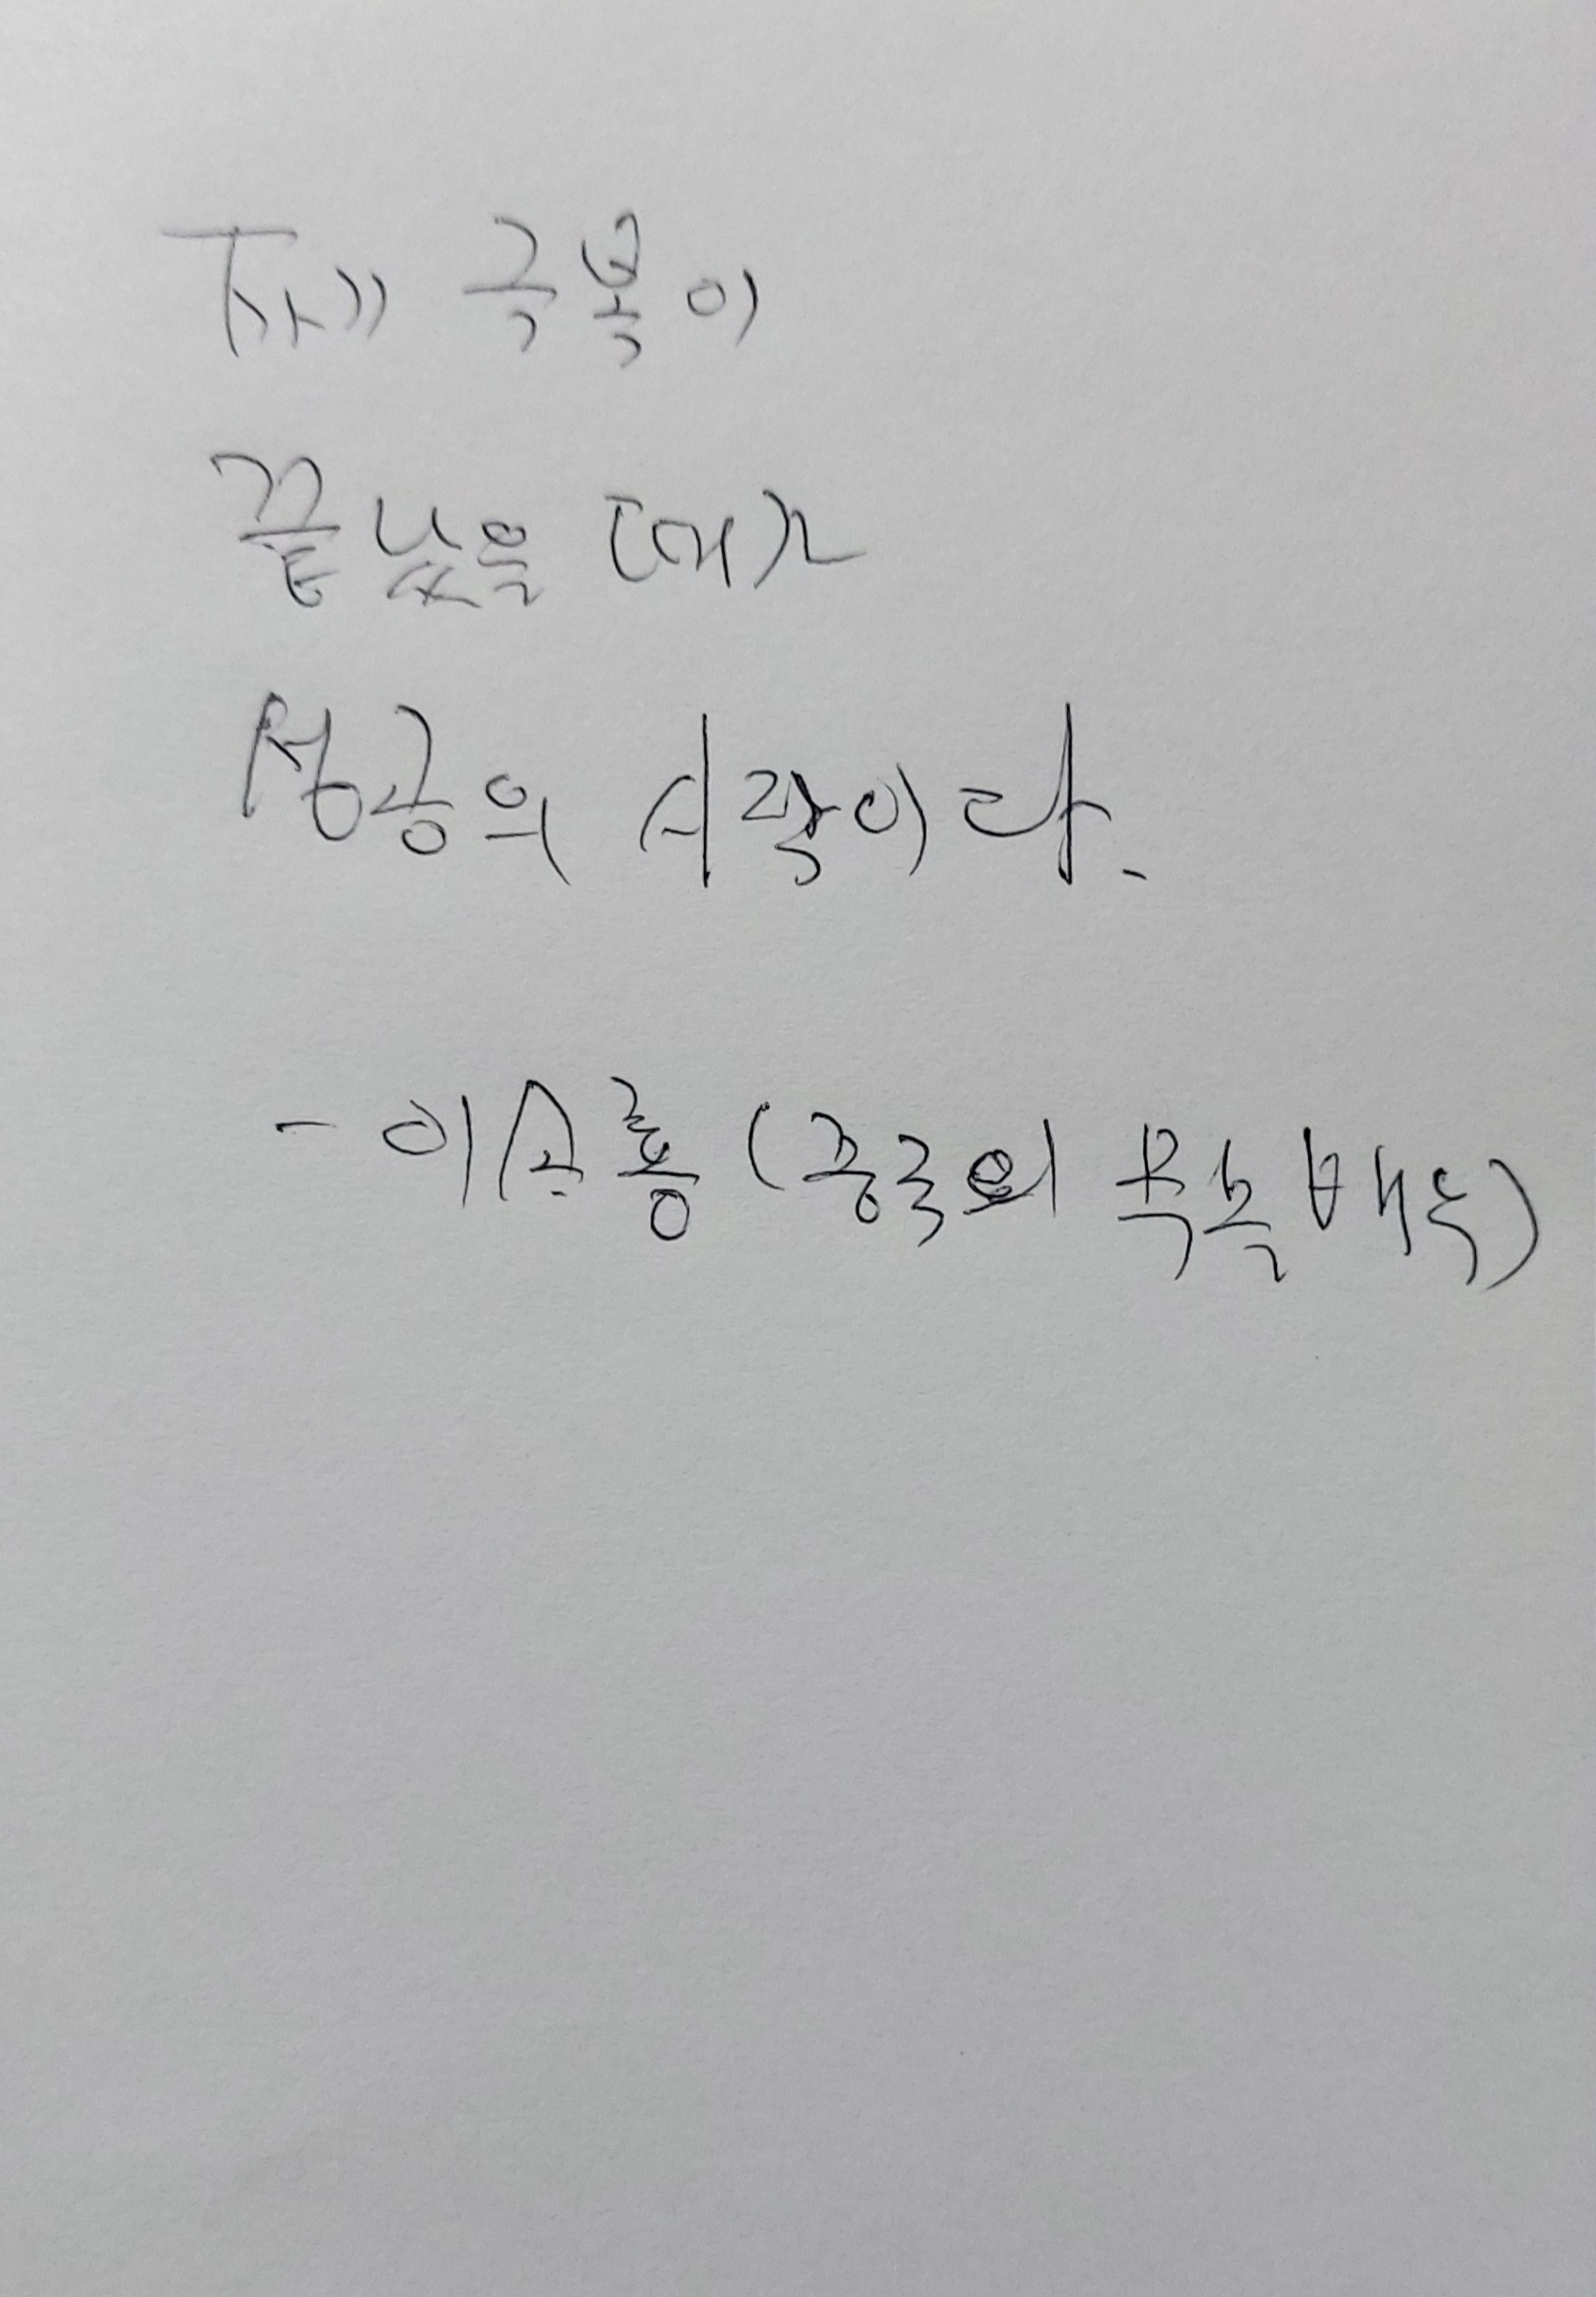 자세 극복이
끝났을 때가
성공의 시작이다.
- 이소룡 (중국의 무술 배우)